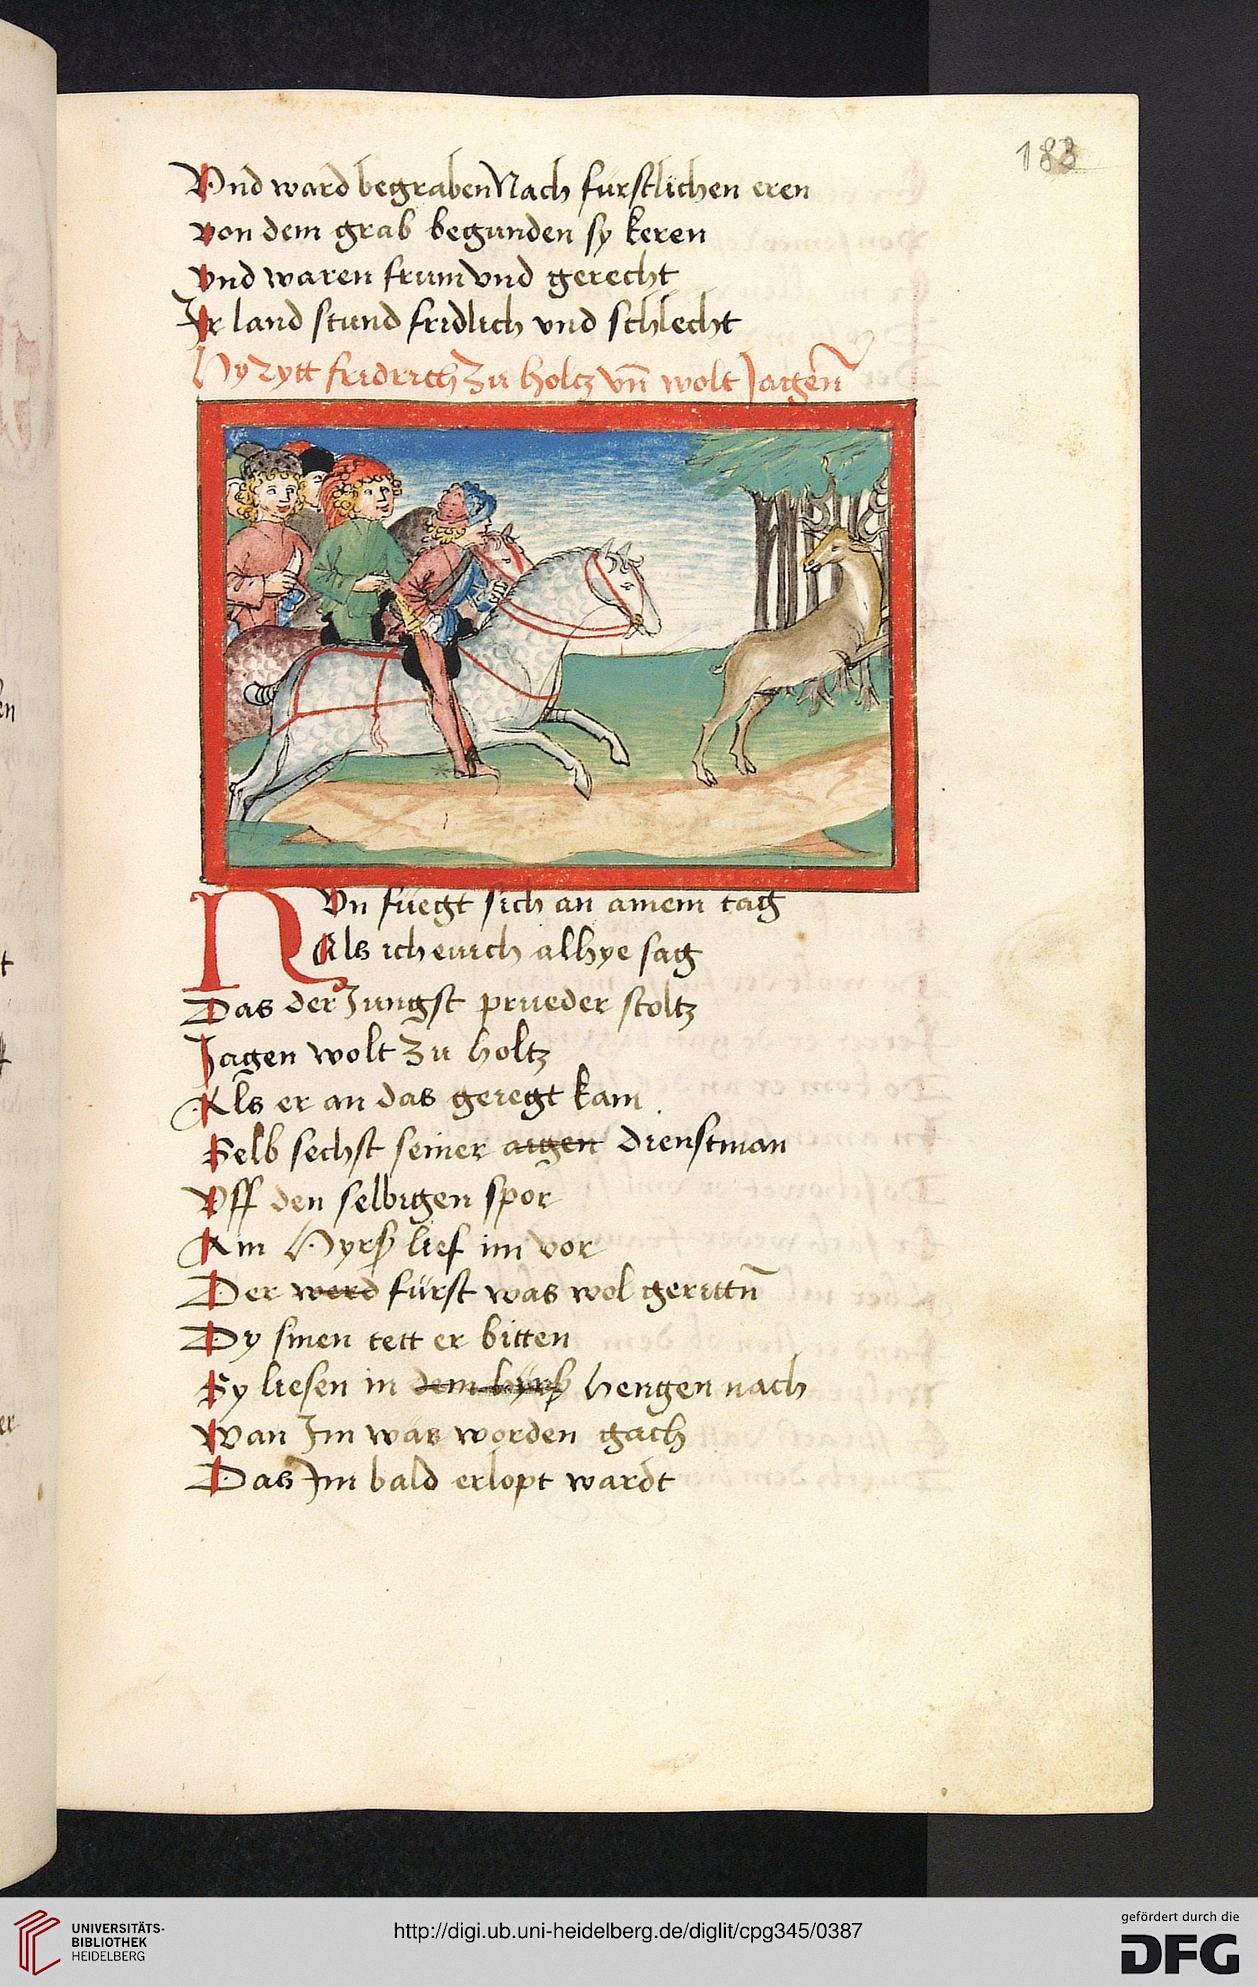 183
Vnd ward begraben Nach fürstlichen eren
von dem grab begunden sy keren
vnd waren frum vnd gerecht
Jr land stund fridlich vnd schlecht
Hy Rytt fridrich Zu holtz vn̄ wolt Jagen̄
NVn füegt sich an ainem tag
Als ich euch alhye sag
Das der Jungst prueder stoltz
Jagen wolt Zu holtz
Als er an das geregt kam
Selb sechst seiner aigen dienstman
Vff den selbigen spor
Ain Hyrß lief im vor
Der werd fürst was wol gerittn̄
Dy sinen tett er bitten
Sy liesen in dem hyrß hengen nach
Wan Im was worden gach
Das Im bald erlopt wardt
UNIVERSITÄTS-
BIBLIOTHEK
HEIDELBERG
http://digi.ub.uni-heidelberg.de/diglit/cpg345/0387
gefördert durch die
DFG